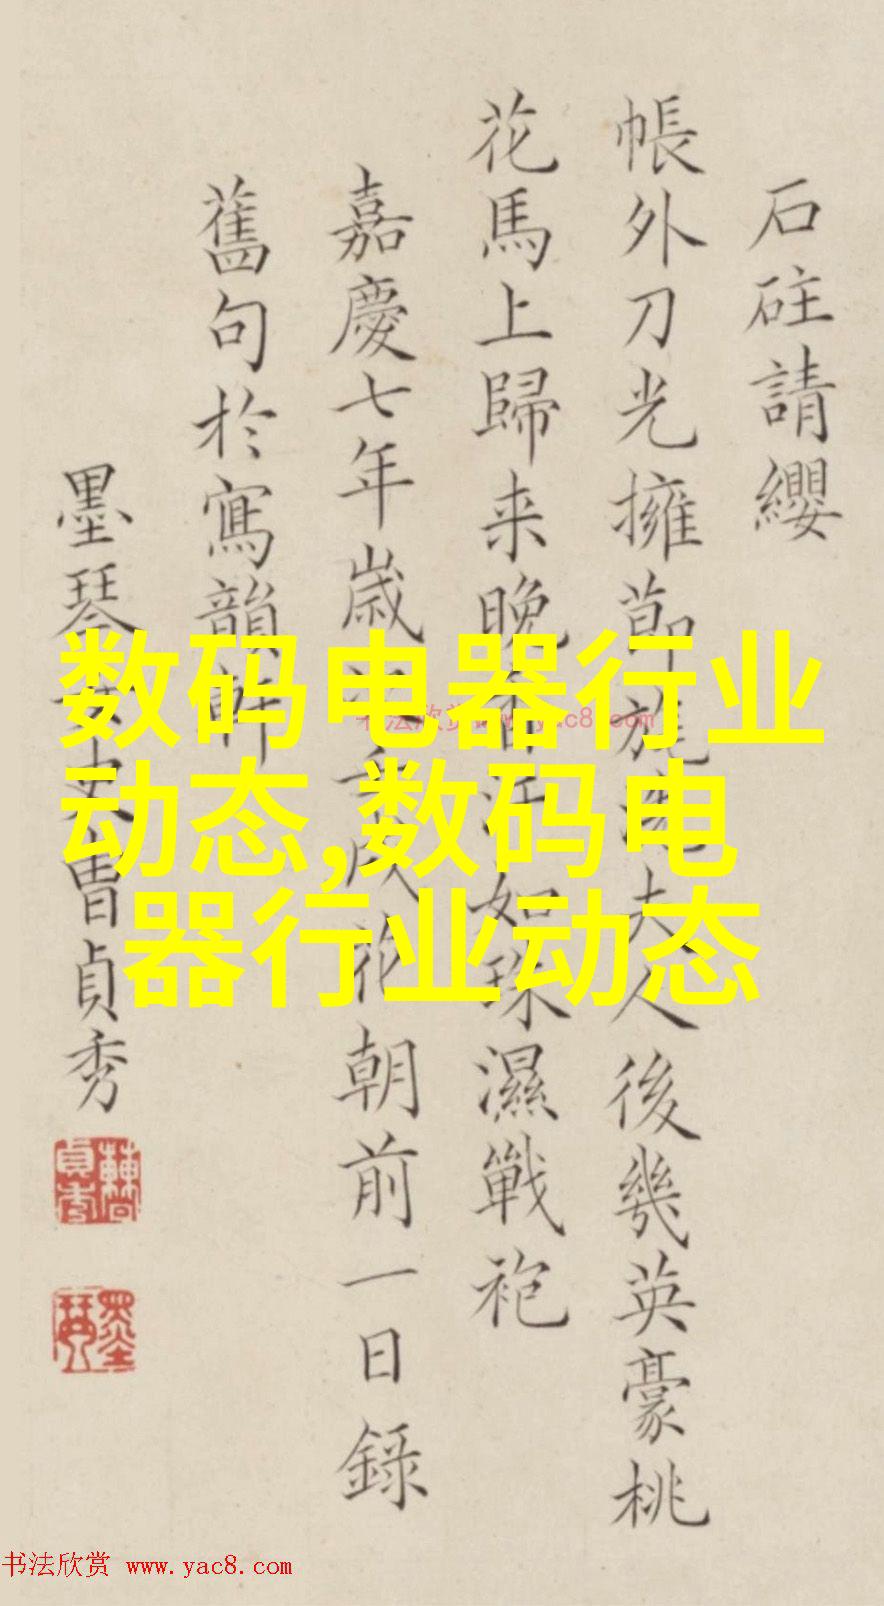 石砫請纓
帳外刀光擁節旄夫人後幾英豪桃
花馬上歸来晚汗如珠濕戰袍
嘉慶七年歲次壬戌花朝前一日錄
舊句於寫韻軒
墨琴女史曹貞秀
数码电器行业
动态,数码电
器行业动态
书法欣赏 www.yac8.com
书法欣赏 www.yac8.com